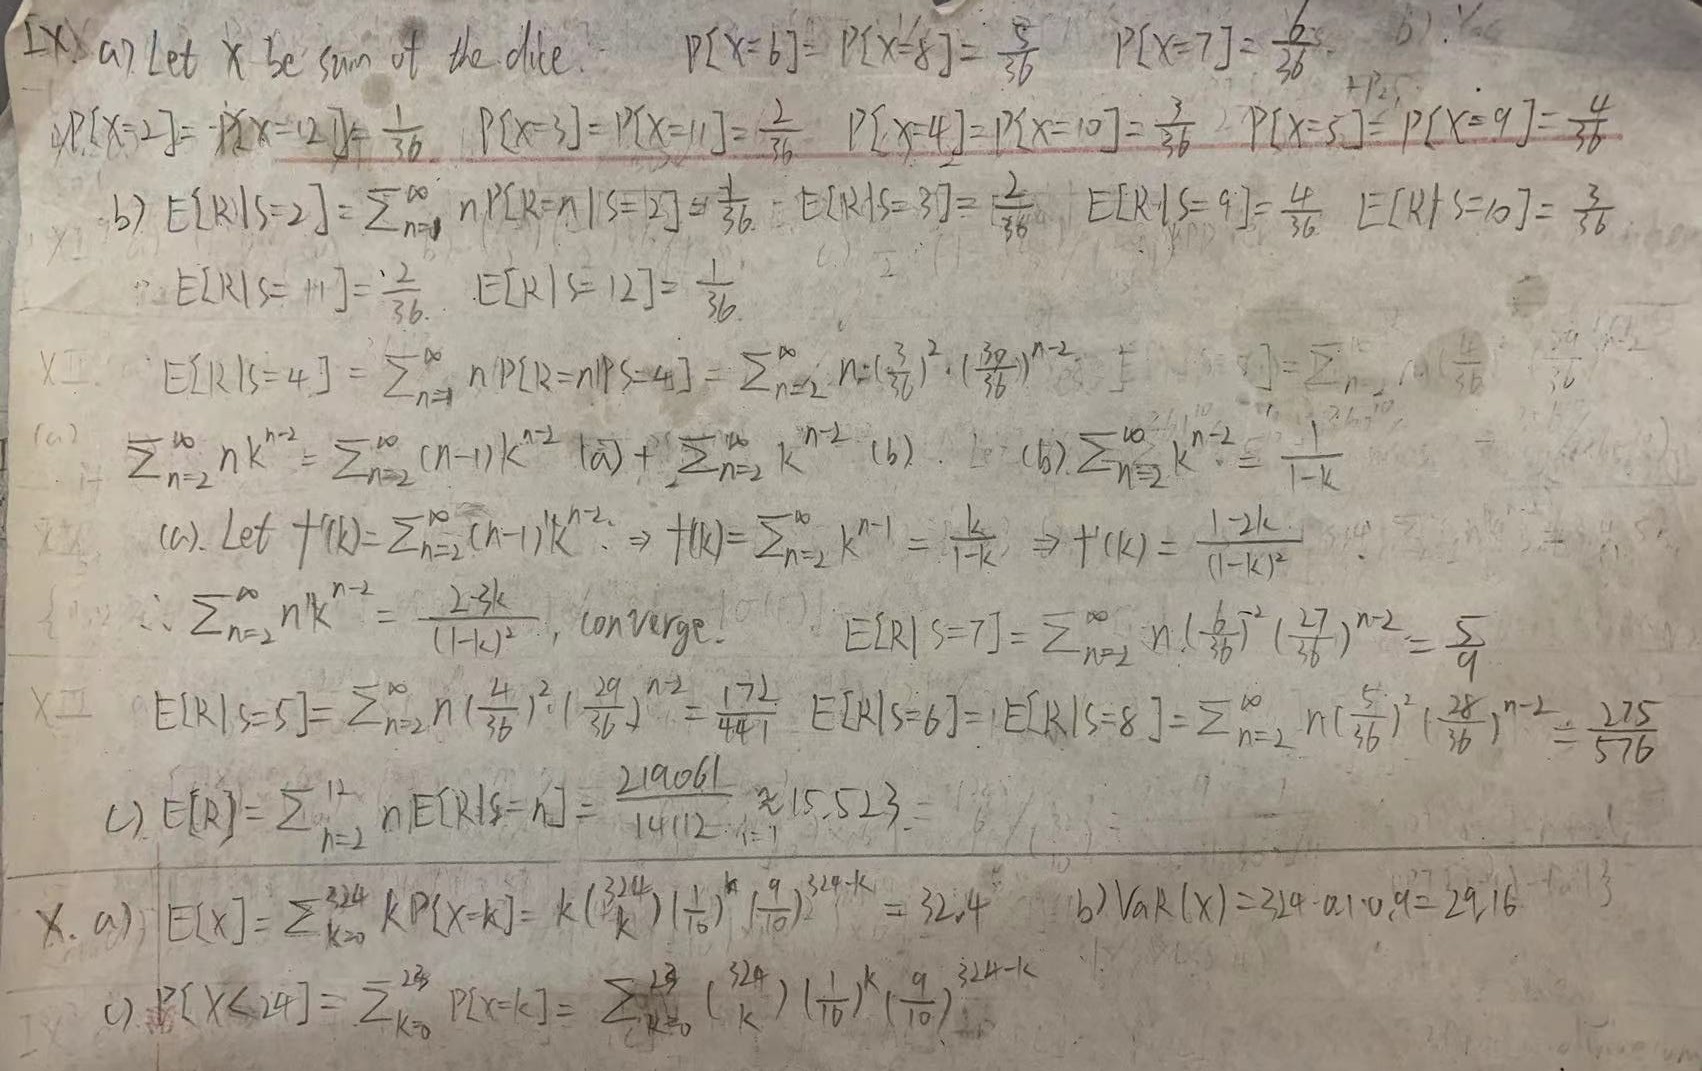 IX. a) Let X be sum of the dice. P[X=6]=P[X=8]=5/36 P[X=7]=6/36
P[X=2]=P[X=12]=1/36 P[X=3]=P[X=11]=2/36 P[X=4]=P[X=10]=3/36 P[X=5]=P[X=9]=4/36
b) E[R|S=2]=∑_{n=1}^∞ nP[R=n|S=2]=1/36 E[R|S=3]=2/36 E[R|S=9]=4/36 E[R|S=10]=3/36
E[R|S=11]=2/36. E[R|S=12]=1/36.
E[R|S=4]=∑_{n=1}^∞ nP[R=n|S=4]=∑_{n=2}^∞ n·(3/36)^2·(30/36)^{n-2}
∑_{n=2}^∞ nk^{n-2}=∑_{n=2}^∞ (n-1)k^{n-2} (a)+∑_{n=2}^∞ k^{n-2} (b). (b) ∑_{n=2}^∞ k^{n-2}=1/(1-k)
(a). Let f'(k)=∑_{n=2}^∞ (n-1)k^{n-2}. ⇒ f(k)=∑_{n=2}^∞ k^{n-1}=k/(1-k) ⇒ f'(k)=(1-2k)/(1-k)^2
∴ ∑_{n=2}^∞ nk^{n-2}=(2-3k)/(1-k)^2, converge. E[R|S=7]=∑_{n=2}^∞ n·(6/36)^2(27/36)^{n-2}=5/9
E[R|S=5]=∑_{n=2}^∞ n(4/36)^2·(29/36)^{n-2}=172/441 E[R|S=6]=E[R|S=8]=∑_{n=2}^∞ n(5/36)^2(28/36)^{n-2}=275/576
c) E[R]=∑_{n=2}^{12} nE[R|S=n]=219061/14112≈15.523
X. a) E[X]=∑_{k=0}^{324} kP[X=k]=k(324 k)(1/10)^k(9/10)^{324-k}=32.4 b) VaR(X)=324·0.1·0.9=29.16
c) P[X<24]=∑_{k=0}^{23} P[X=k]=∑_{k=0}^{23} (324 k)(1/10)^k(9/10)^{324-k}